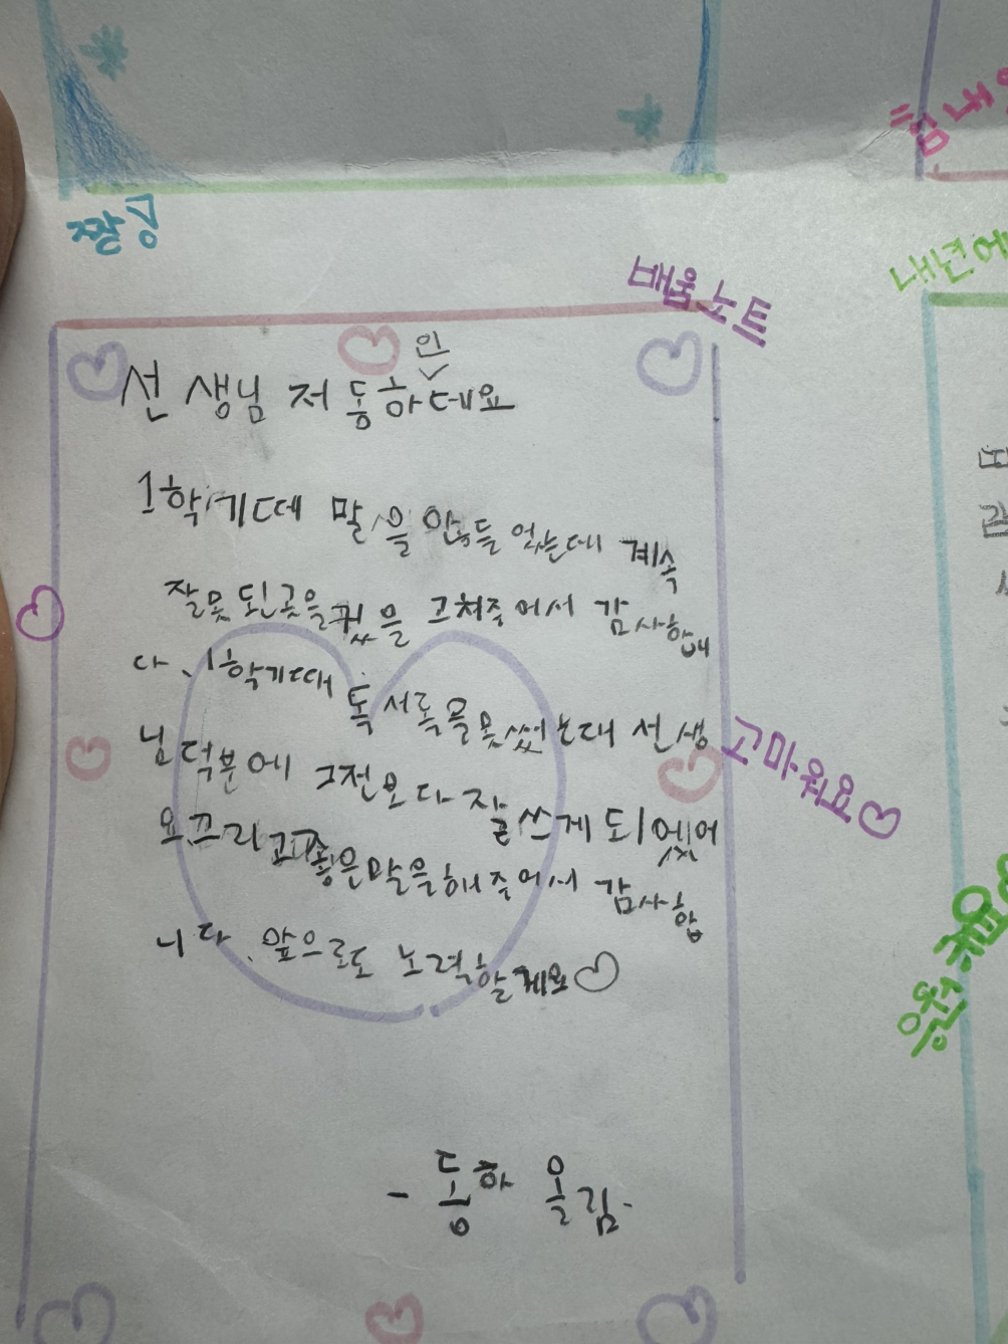 짱
배움노트
내년에
선생님 저 동하인데요
1학기때 말을 안들었는데 계속
잘못된곳을 고쳐주어서 감사합니
다. 1학기때 독서록을못썼는대 선생
님덕분에 그전보다 잘쓰게 되엤어
요끄리고좋은말을해주어서 감사합
니다. 앞으로도 노력할게요♡
고마워요♡
- 동하 올림.